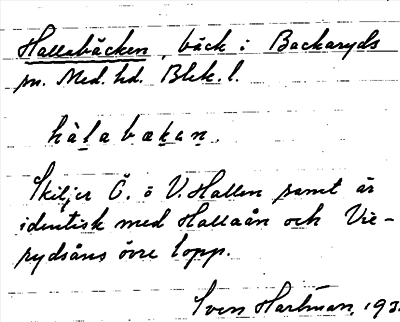 Hallabäcken, bäck i Backaryds
sn. Med. hd. Blek. l.
hàlabækan.
Skiljer Ö. o V. Hallen samt är
identisk med Hallaån och Vie-
rydsåns övre lopp.
Sven Hartman, 193.